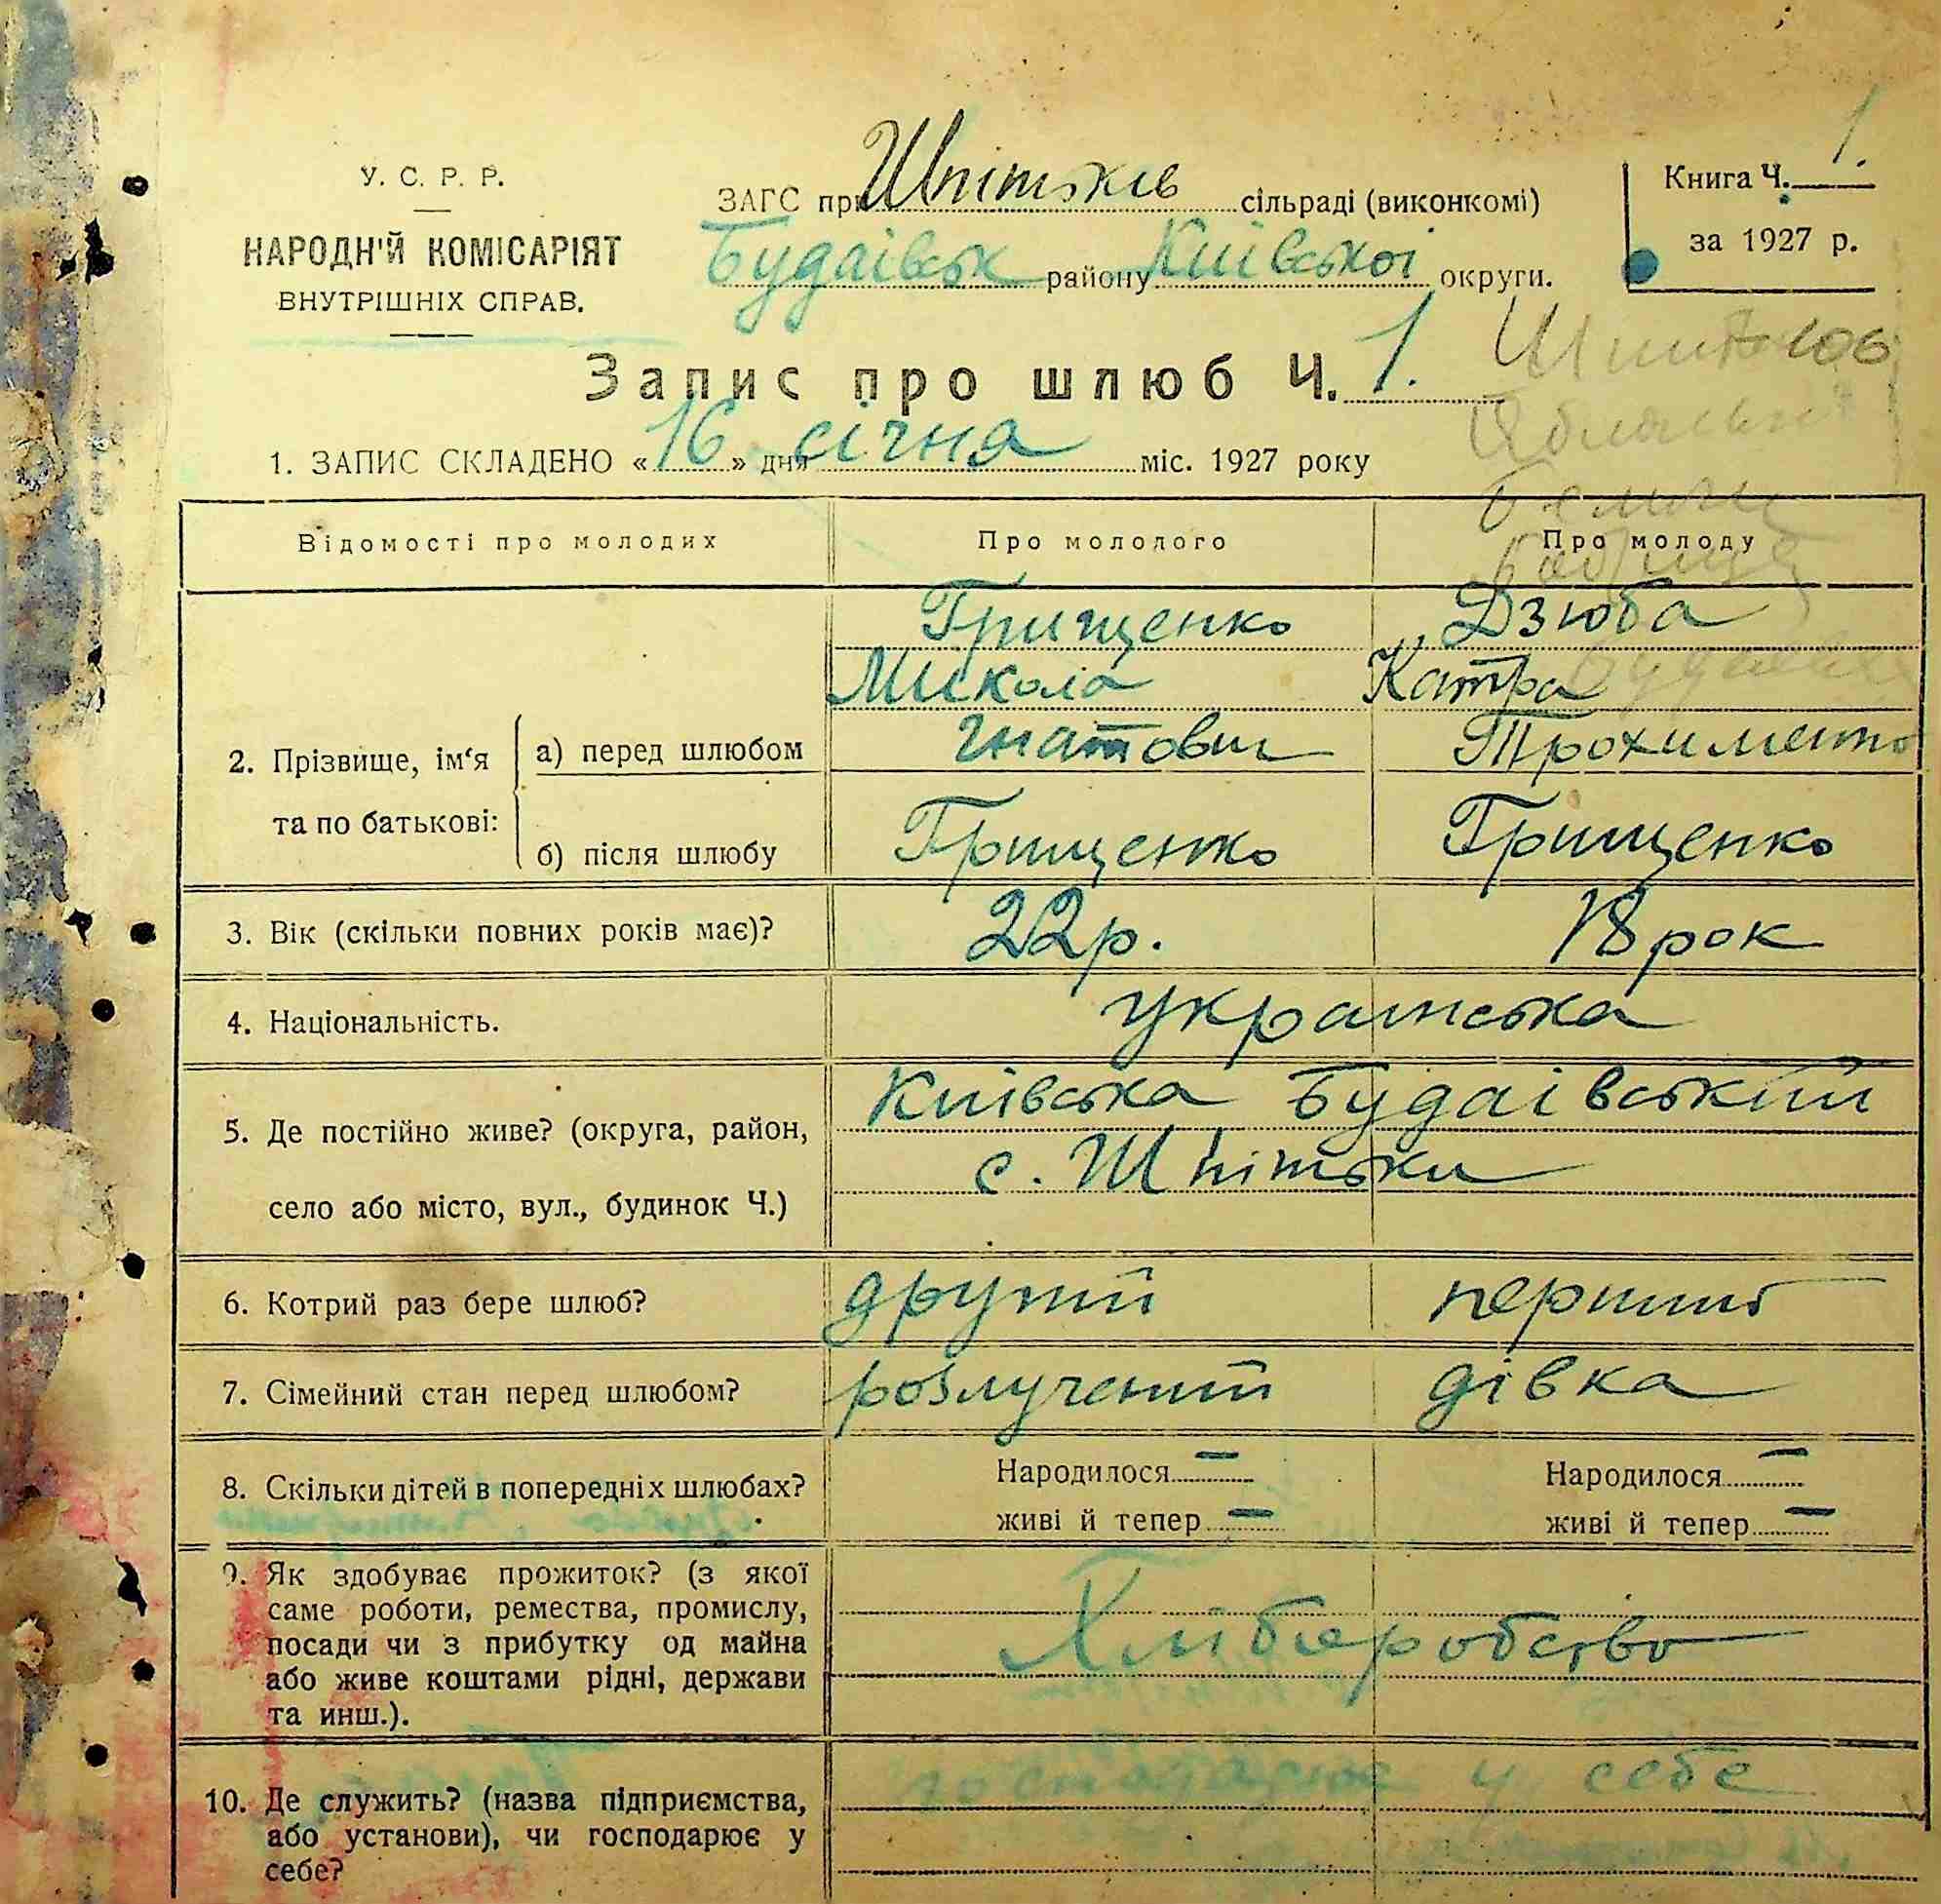 У. С. Р. Р.
НАРОДН'Й КОМІСАРІЯТ
ВНУТРІШНІХ СПРАВ.
ЗАГС при Шпітьків сільраді (виконкомі)
Будаівськ району Київськоі округи.
Книга Ч. 1.
за 1927 р.
Запис про шлюб Ч. 1.
1. ЗАПИС СКЛАДЕНО «16» дня січня міс. 1927 року
Відомості про молодих Про молодого Про молоду
Грищенко Дзюба
Микола Катря
2. Прізвище, ім'я та по батькові: а) перед шлюбом Гнатович
б) після шлюбу Грищенко Грищенко
3. Вік (скільки повних років має)? 22р. 18 рок
4. Національність. українська
5. Де постійно живе? (округа, район, Київська Будаівський
село або місто, вул., будинок Ч.) с. Шпітьки
6. Котрий раз бере шлюб? другий перший
7. Сімейний стан перед шлюбом? розлучений дівка
8. Скільки дітей в попередніх шлюбах? Народилося — Народилося —
живі й тепер — живі й тепер —
9. Як здобуває прожиток? (з якої
саме роботи, ремества, промислу, Хліборобство
посади чи з прибутку од майна
або живе коштами рідні, держави
та инш.).
господарює у себе
10. Де служить? (назва підприємства,
або установи), чи господарює у
себе?